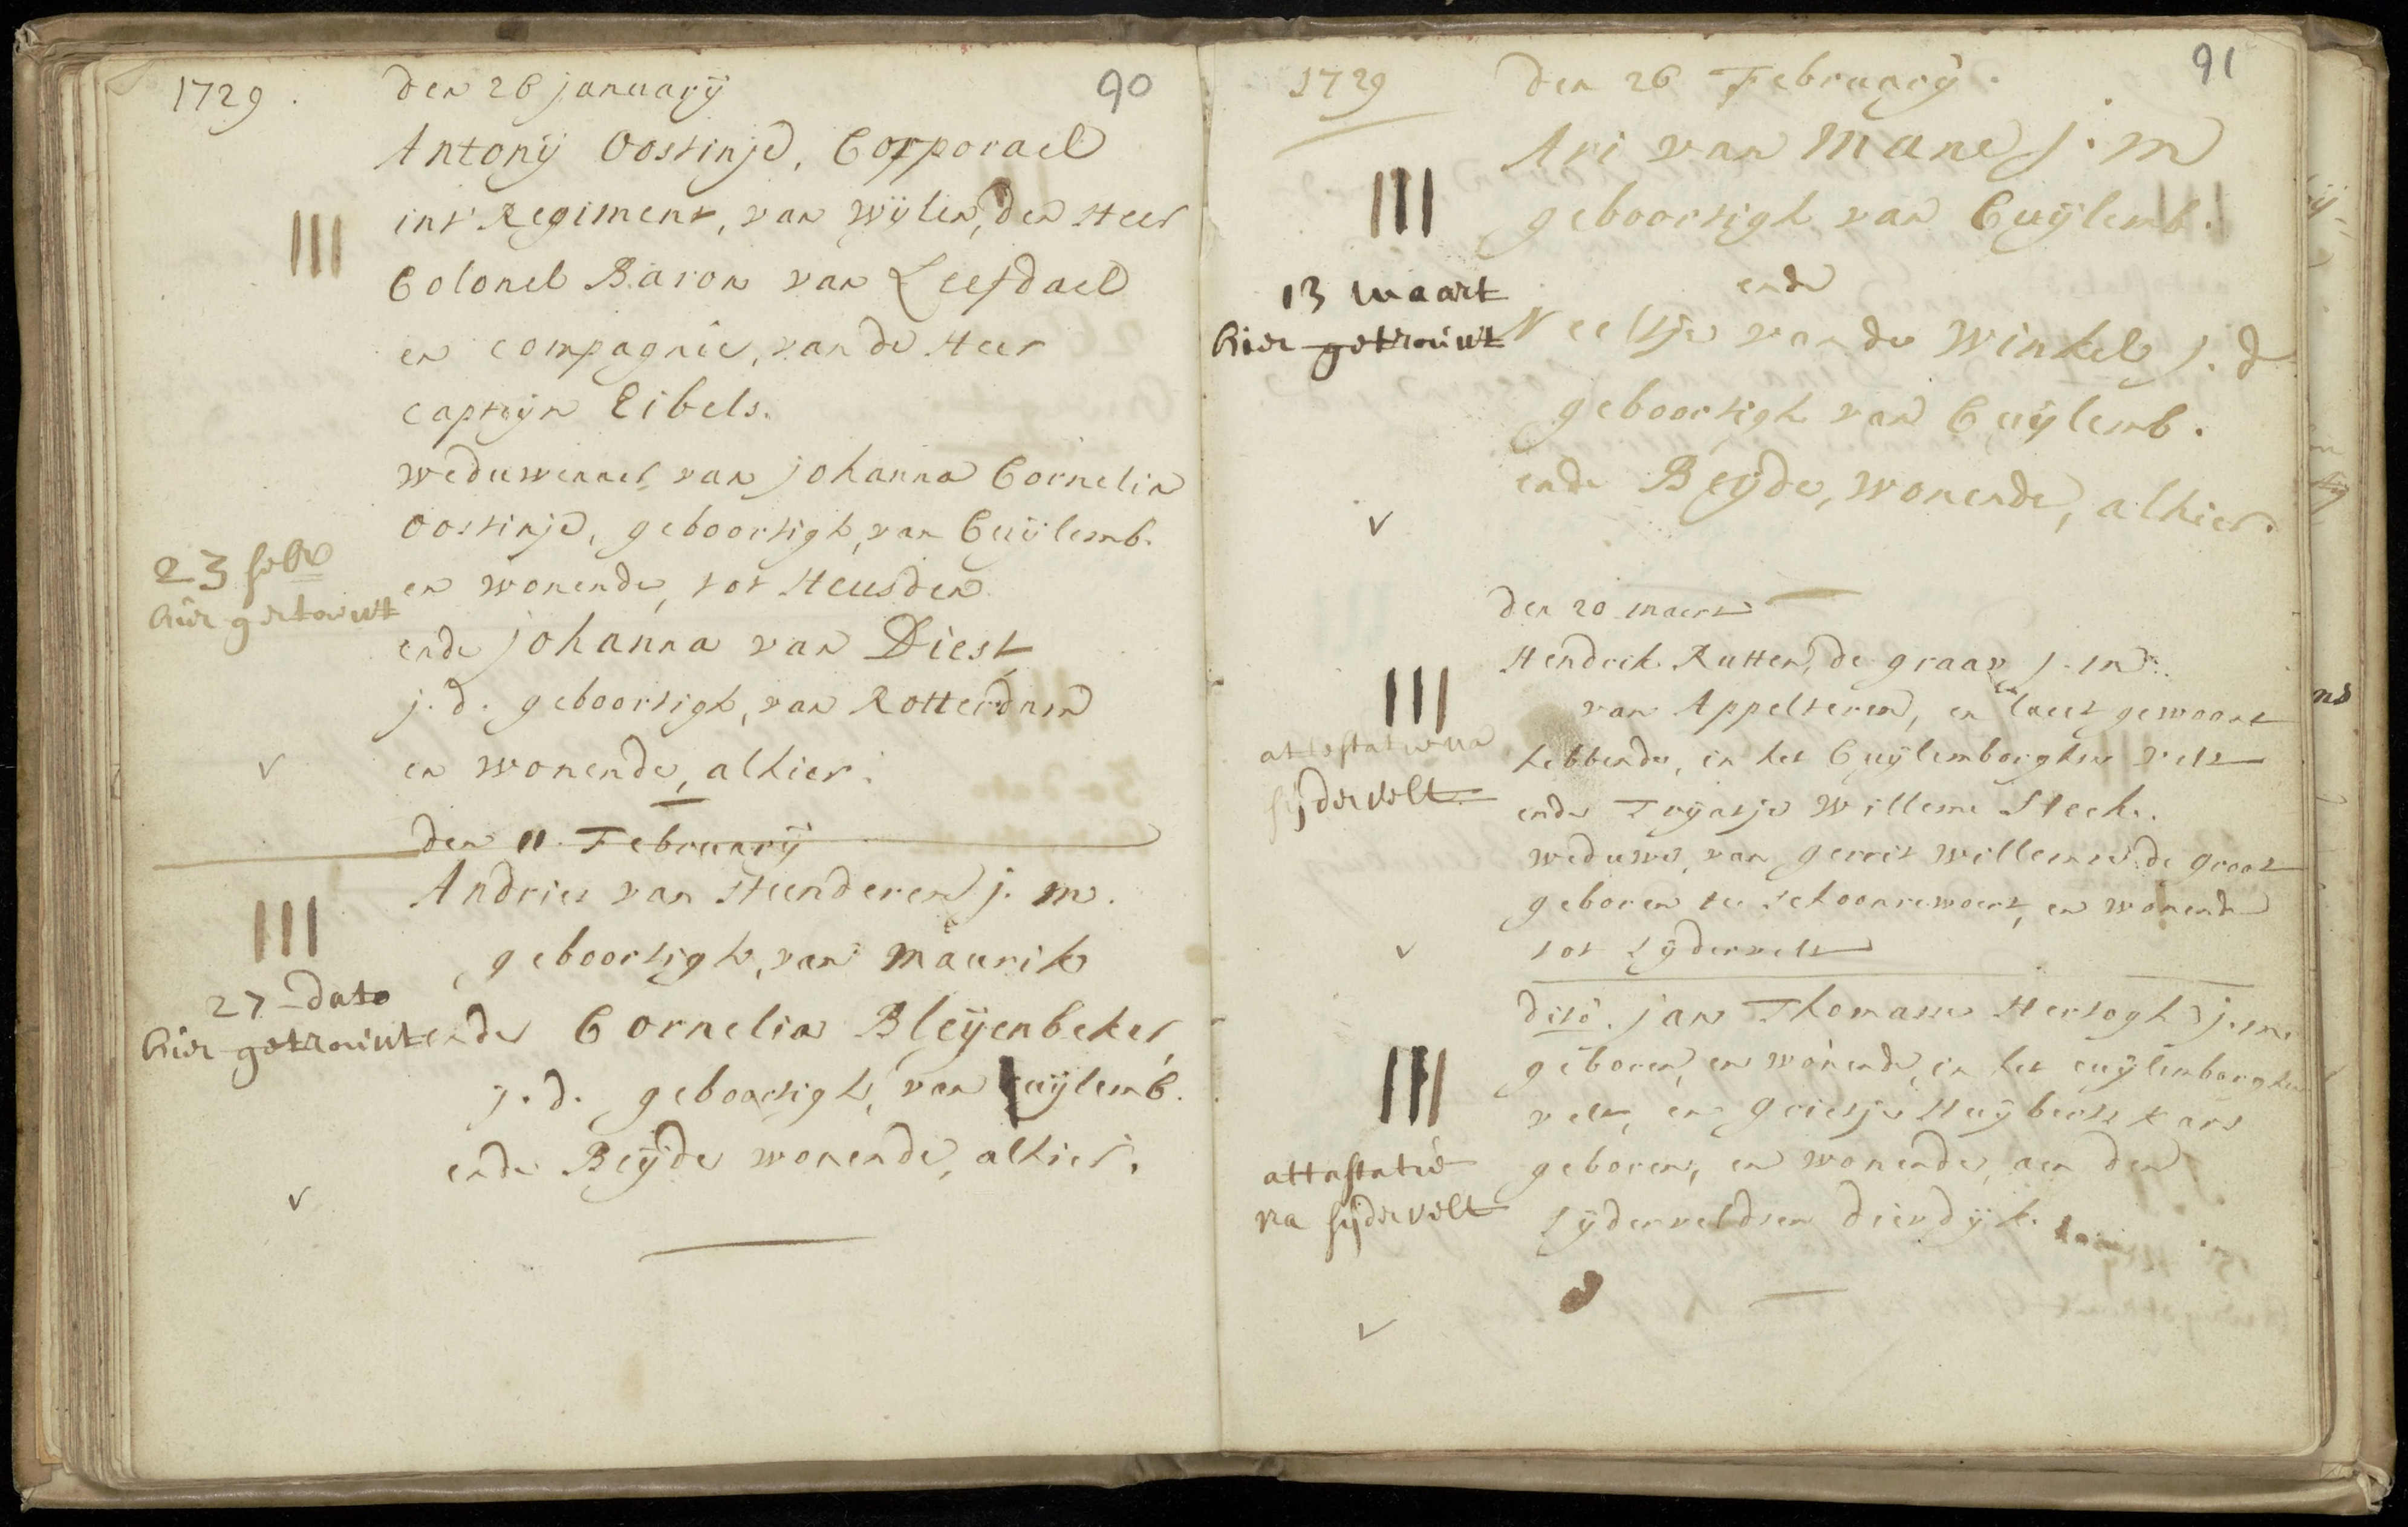 1729.
den 26 januarÿ
90
Antonÿ Oostinje, Corporael
int Regiment, van wÿlen, den Heer
Colonel Baron van Leefdael
en compagnie, van de Heer
capteyn Eibels.
weduwenaer van johanna Cornelia
Oostinje, geboortigh, van Cuÿlemb.
23 febr
hier getrouwt
en wonende, tot Heusden
ende johanna van Diest
j.d. geboortigh, van Rotterdam
en wonende, alhier.
den 11 Februarÿ
Andries van Hunderen j. m.
geboortigh, van Maurik
27 dato
hier getrouwt
ende Cornelia Bleÿenbeker
j.d. geboortigh, van Cuÿlemb.
ende Beÿde wonende, alhier.
1729
den 26 Februarÿ.
91
Ari van Mane j.m
geboortigh van Cuÿlemb.
13 maart
hier getrouwt
ende
Neeltje van de Winkel j.d
geboortigh van Cuÿlemb.
ende Beÿde, wonende, alhier.
den 20 maert
Hendrik Rutten, de graav j.m.
van Appelteren, en laest gewoont
attestatie na
sijdervelt
hebbende, in het Cuÿlemborghse velt
ende Trÿntje Willems Steek.
weduwe, van gerrit willemse de groot
geboren te schoonrewoert, en wonende
tot Zÿdervelt
dito. jan Thomasse Hertogh j.m.
geboren, en wonende, in het cuÿlemborghse
velt, en Grietje Huÿberts
attestatie
na sijdervelt
geboren, en wonende, aen den
Zÿderveldsen diendÿk.